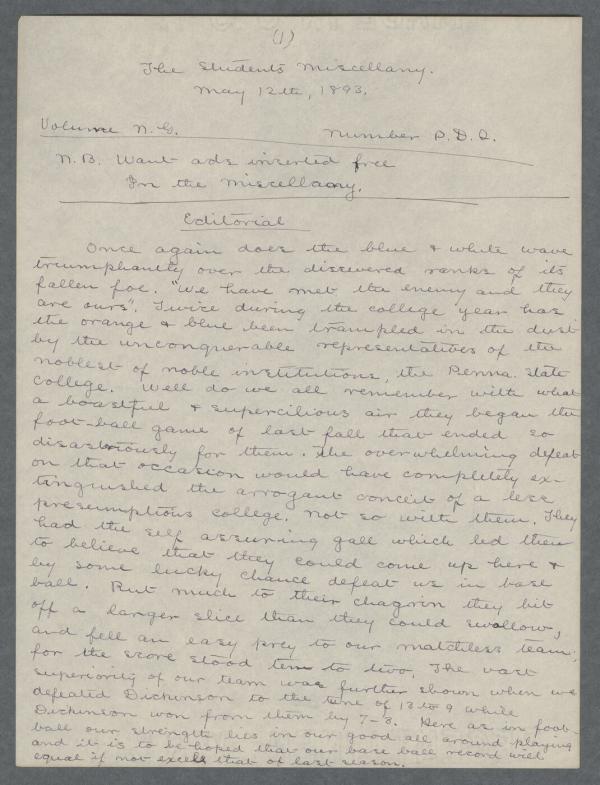 (1)
The Students Miscellany.
May 12th, 1893.
Volume N.G. Number P.D.Q.
N.B. Want ads inserted free
In the Miscellany.
Editorial
Once again does the blue & white wave
triumphantly over the dissevered ranks of its
fallen foe. "We have met the enemy and they
are ours". Twice during the college year has
the orange & blue been trampled in the dust
by the unconquerable representatives of the
noblest of noble institutions, the Penna. State
College. Well do we all remember with what
a boastful & supercilious air they began the
foot-ball game of last fall that ended so
disastriously for them. The overwhelming defeat
on that occasion would have completely ex-
tinguished the arrogant conceit of a less
presumptious college. Not so with them. They
had the self assuring gall which led them
to believe that they could come up here &
by some lucky chance defeat us in base
ball. But much to their chagrin they bit
off a larger slice than they could swollow,
and fell an easy prey to our matchless team;
for the score stood ten to two. The vast
superiority of our team was further shown when we
defeated Dickinson to the tune of 13 to 9 while
Dickinson won from them by 7-3. Here as in foot-
ball our strength lies in our good all around playing
and it is to be hoped that our base ball record will
equal if not excell that of last season.